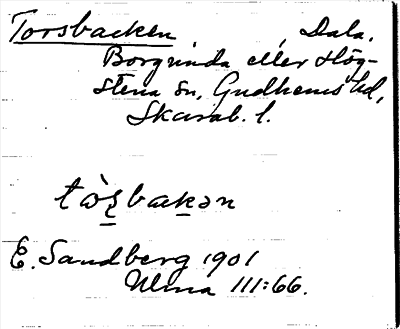 Torsbacken, Dala,
Borgunda eller Hög-
stena sn, Gudhems hd,
Skarab. l.
tòs̱bak̲ən
E. Sandberg 1901
Ulma 111:66.